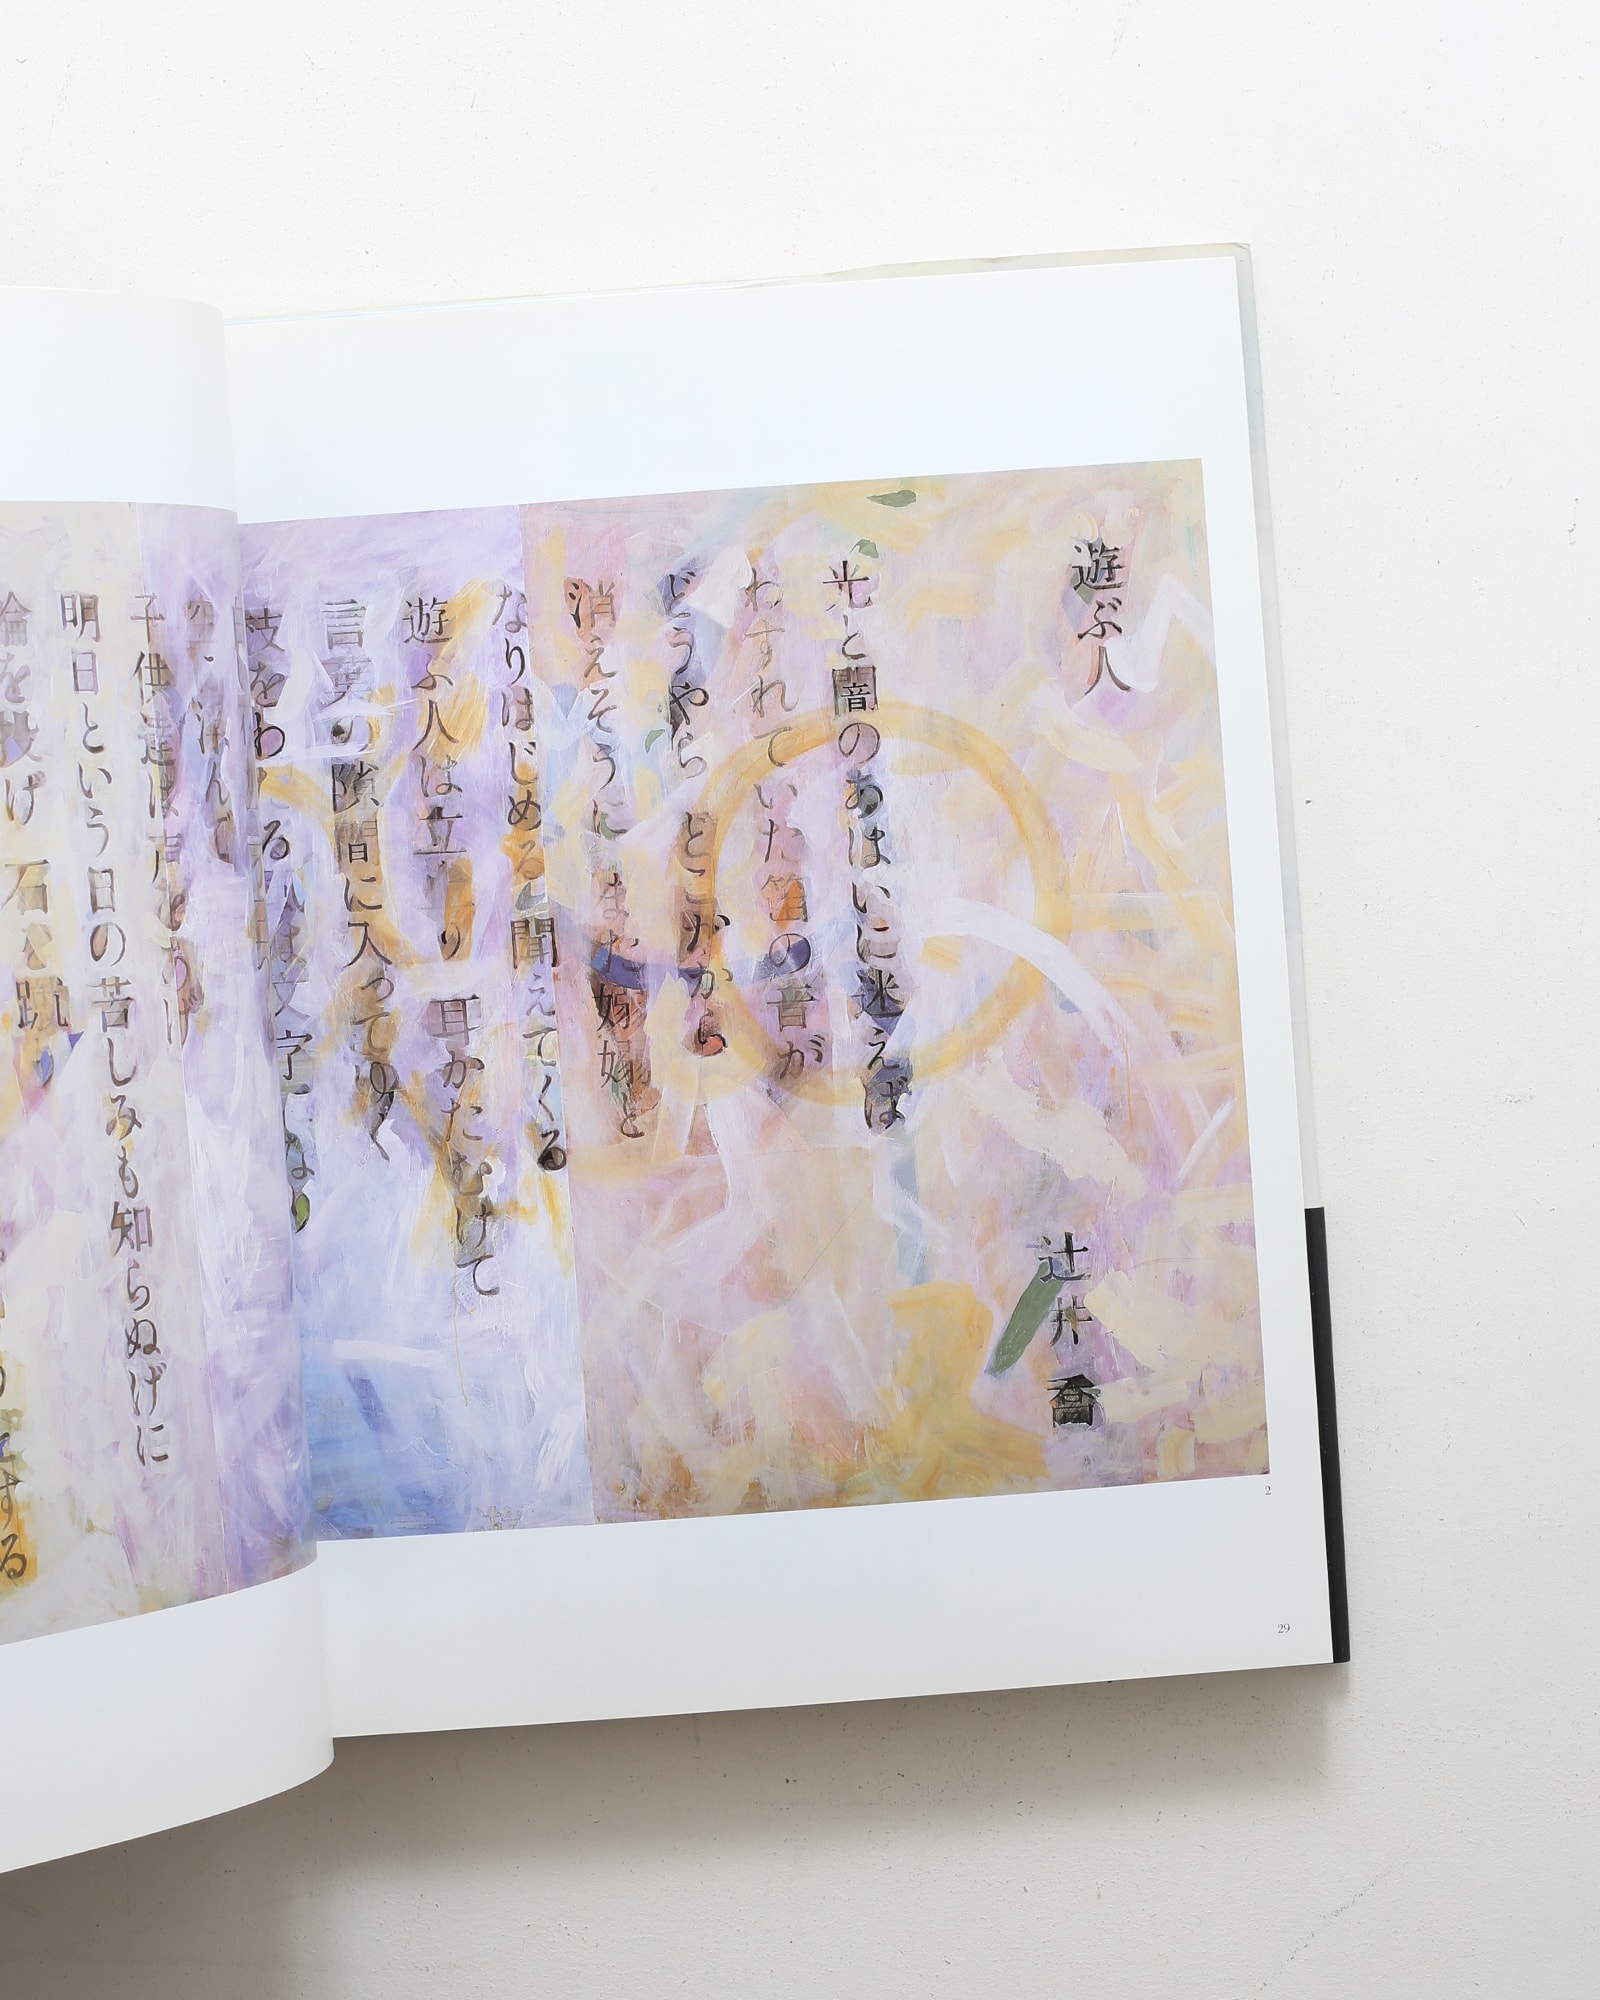 遊ぶ人
辻井喬
光と闇のあはいに迷えば
わすれていた笛の音が
どうやら どこからか
消えそうに また 嫋嫋と
なりはじめると聞えてくる
遊ぶ人は立止り 耳かたむけて
言葉の隙間に入ってゆく
技をわ る は文字になり
んで
子供達は声をあげ
明日という日の苦しみも知らぬげに
輪を投げ 石を蹴り
とする
2
29